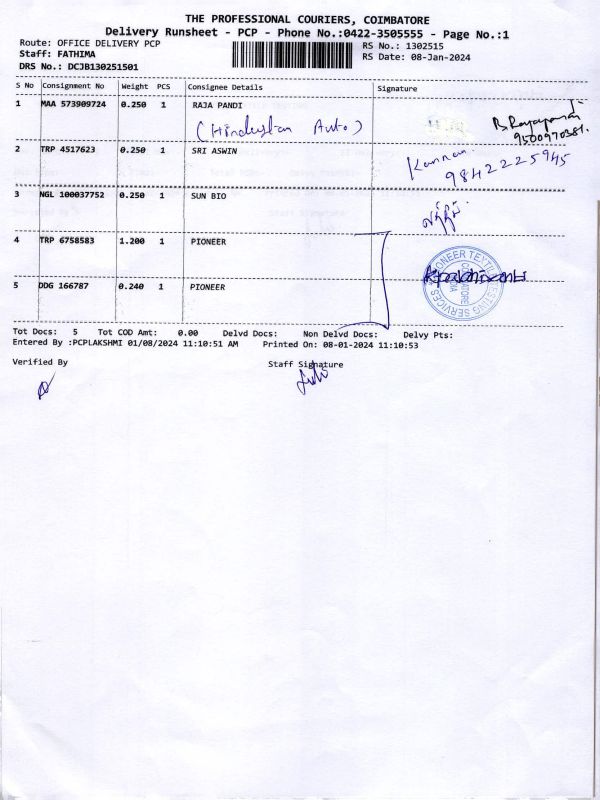 THE PROFESSIONAL COURIERS, COIMBATORE
Delivery Runsheet - PCP - Phone No.:0422-3505555 - Page No.:1
Route: OFFICE DELIVERY PCP RS No.: 1302515
Staff: FATHIMA RS Date: 08-Jan-2024
DRS No.: DCJB130251501
S No Consignment No Weight PCS Consignee Details Signature
1 MAA 573909724 0.250 1 RAJA PANDI
(Hindustan Auto) B. Rajapandi
9500970381.
2 TRP 4517623 0.250 1 SRI ASWIN Kannan
9842225945
3 NGL 100037752 0.250 1 SUN BIO
4 TRP 6758583 1.200 1 PIONEER
PIONEER TEXTILE TESTING SERVICES
COIMBATORE
INDIA
5 DDG 166787 0.240 1 PIONEER
Tot Docs: 5 Tot COD Amt: 0.00 Delvd Docs: Non Delvd Docs: Delvy Pts:
Entered By :PCPLAKSHMI 01/08/2024 11:10:51 AM Printed On: 08-01-2024 11:10:53
Verified By Staff Signature